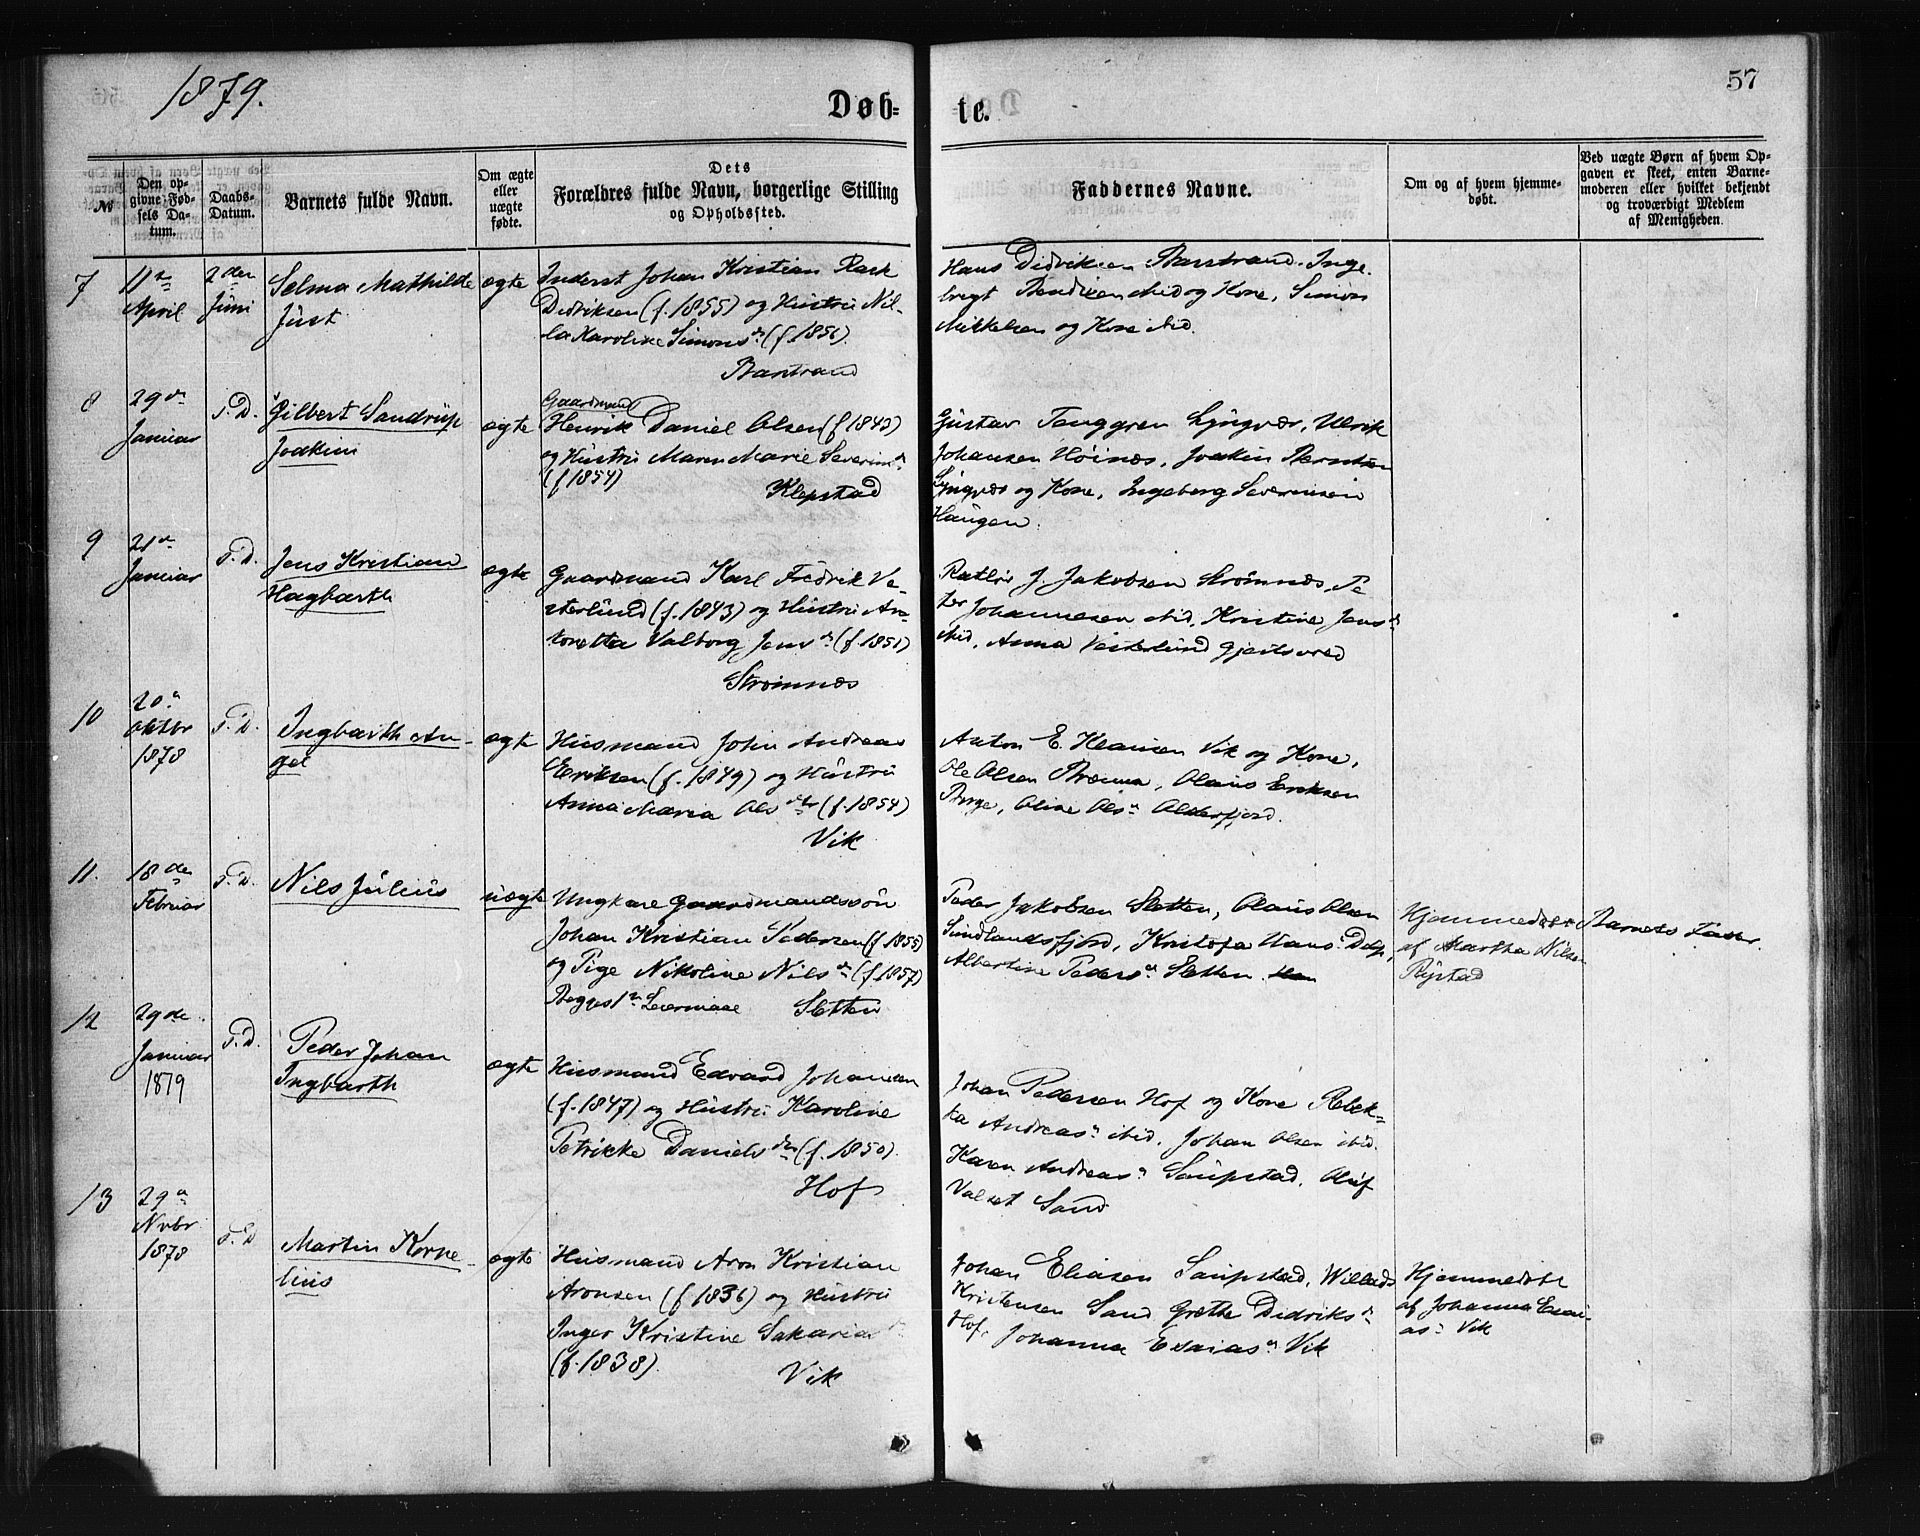 1879.
57
Døb-
te.
№
Den op-
givne Fød-
sels Da-
tum.
Daabs-
Datum.
Barnets fulde Navn.
Om ægte
eller
uægte
fødte.
Dets
Forældres fulde Navn, borgerlige Stilling
og Opholdssted.
Faddernes Navne.
Om og af hvem hjemme-
døbt.
Ved uægte Børn af hvem Op-
gaven er skeet, enten Barne-
moderen eller hvilket bekjendt
og troværdigt Medlem
af Menigheden.
7
11te
April
2den
Juni
Selma Mathilde
Just
ægte
Inderst Johan Kristian Rask
Didriksen (f. 1855) og Hustru Nil-
la Karoline Simonsd. (f. 1856)
Barstrand
Hans Didriksen Barstrand. Inge-
brigt Bendixen ibid og Kone, Simon
Mikkelsen og Kone ibid.
8
29de
Januar
S.D.
Gilbert Sandrup
Joakim
ægte
Gaardmand
Henrik Daniel Olsen (f 1842)
og Hustru Maren Marie Severind.
(f. 1854)
Klepstad
Gustav Tenggren Lyngvær, Ulrik
Johansen Høinæs, Joakim Berntsen
Lyngvær og Kone, Ingeborg Severinsen
Haugen.
9
21de
Januar
S.D.
Jens Kristian
Hagbarth
ægte
Gaardmand Karl Fredrik Ve-
sterlund (f. 1843) og Hustru An-
toretta Valborg Jensd. (f. 1851)
Strømnæs
J. Jakobsen Strømnæs, Pe-
ter Johannesen ibid, Kristine Jensd.
ibid, Anna Vesterlund
10
20de
Oktbr
1878
S.D.
Ingbarth An-
gel
ægte
Husmand John Andreas
Eriksen (f. 1849) og Hustru
Anna Maria Olsdtr (f. 1854)
Vik
Anton E. Klausen Vik og Kone,
Ole Olsen Olaus Eriksen
Oline Olsd. Olderfjord.
11.
18den
Februar
S.D.
Nils Julius
uægte
Ungkare Gaardmandssøn
Johan Kristian Pedersen (f 1855)
og Pige Nikoline Nilsd. (f. 1857)
Sletten
Peder Jakobsen Sletten, Olaus Olsen
Sundlandsfjord, Kristofa Hansd.
Albertine Pedersd. Sletten.
Hjemmedøbt
af Martha Nilsen
Rystad
Barnets Fader.
12
29de.
Januar
1879
S.D.
Peder Johan
Ingbarth
ægte
Husmand Edvard Johansen
(f. 1847) og Hustru Karoline
Petrikke Danielsdtr (f. 1850).
Hof
Johan Pedersen Hof og Kone Rebek-
ka Andreasd. ibid. Johan Olsen ibid.
Karen Andreasd. Saupstad, Oluf
Valset Sand
13
29de
Nvbr
1878
S.D
Martin Korne-
lius
ægte
Husmand Aron Kristian
Aronsen (f 1836) og Hustru
Inger Kristine Sakariasd.
(f. 1838).
Vik
Johan Eliasen Saupstad, Willads
Kristensen Sand Grethe Didriksd.
Hof, Johanna Esaiasd. Vik
Hjemmedøbt
af Johanna Esai-
asd. Vik